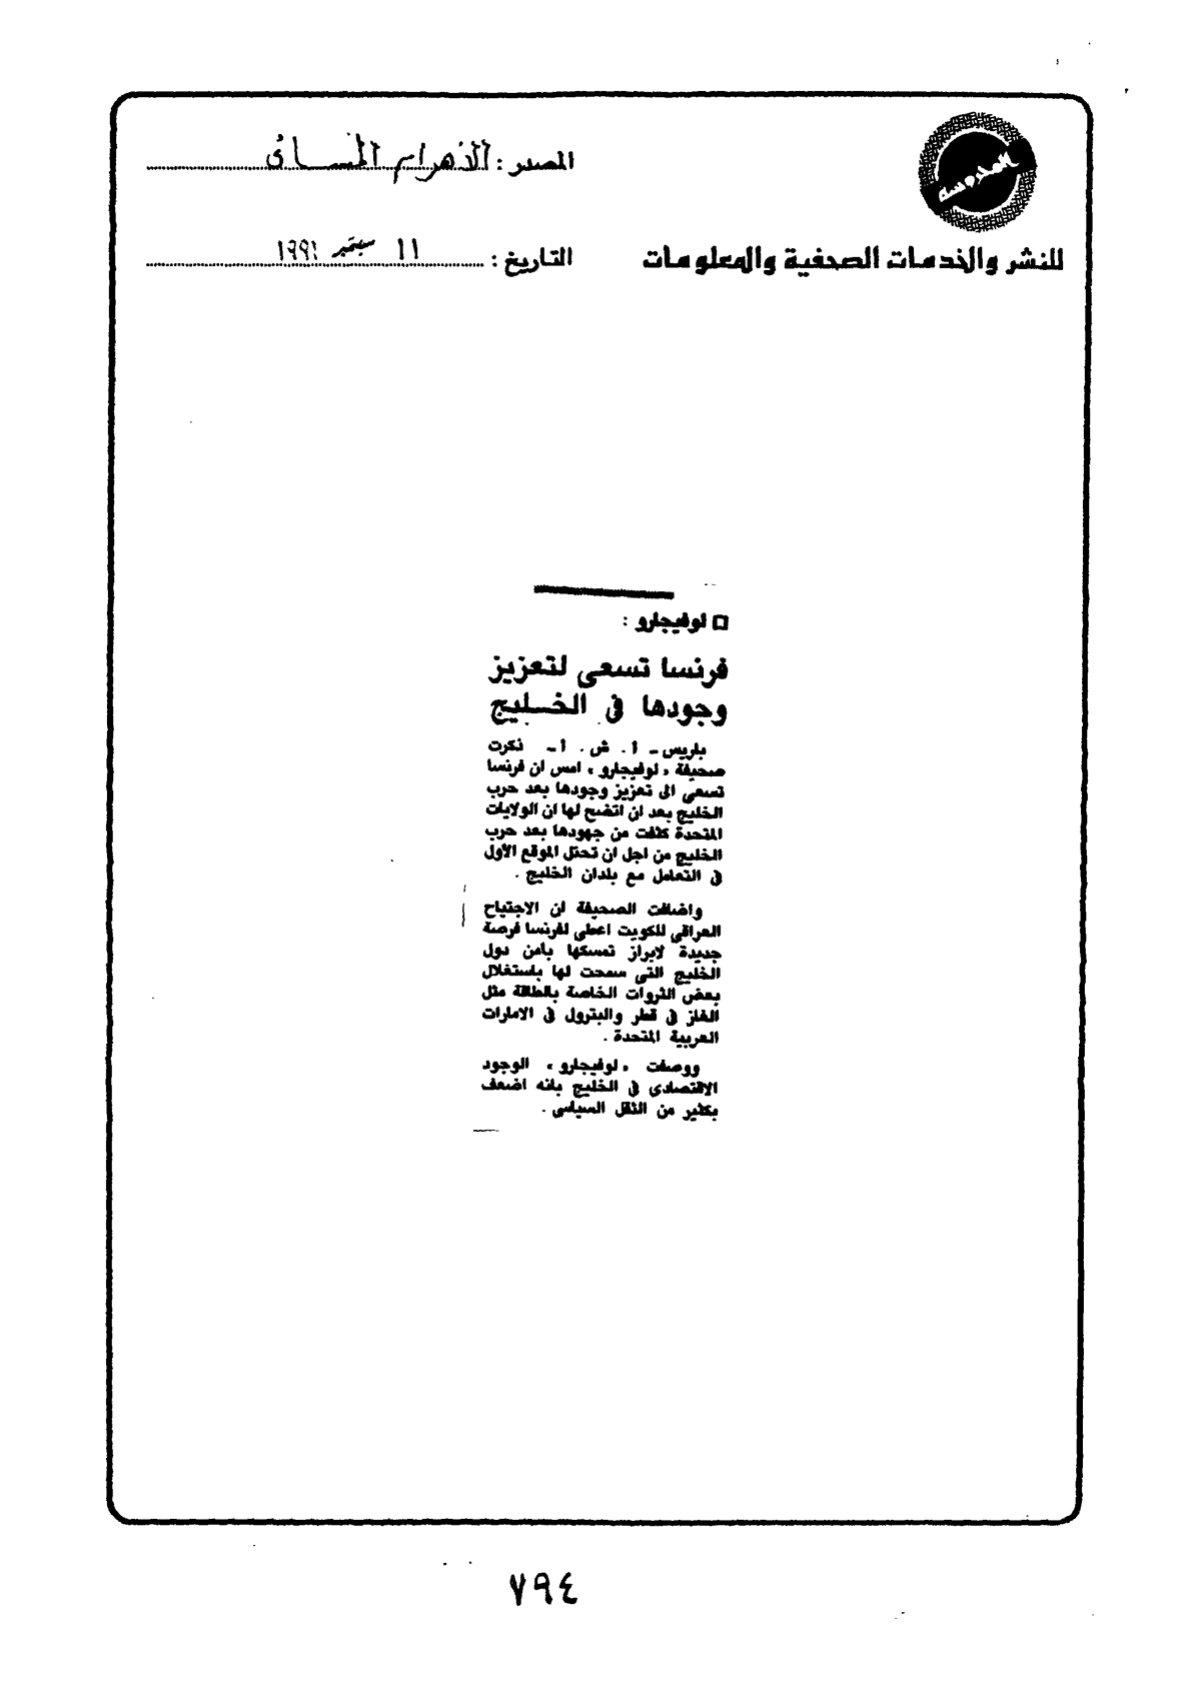 المحروسة
المصدر : الأهرام المسائى
للنشر والخدمات الصحفية والمعلومات
التاريخ : ١١ سبتمبر ١٩٩١
لوفيجارو :
فرنسا تسعى لتعزيز
وجودها فى الخليج
باريس ـ أ . ش . أ ـ ذكرت
صحيفة « لوفيجارو » امس ان فرنسا
تسعى الى تعزيز وجودها بعد حرب
الخليج بعد ان اتضح لها ان الولايات
المتحدة كثفت من جهودها بعد حرب
الخليج من اجل ان تحتل الموقع الأول
فى التعامل مع بلدان الخليج .
واضافت الصحيفة ان الاجتياح
العراقى للكويت اعطى لفرنسا فرصة
جديدة لابراز تمسكها بأمن دول
الخليج التى سمحت لها باستغلال
بعض الثروات الخاصة بالطاقة مثل
الغاز فى قطر والبترول فى الامارات
العربية المتحدة .
ووصفت « لوفيجارو » الوجود
الاقتصادى فى الخليج بانه اضعف
بكثير من الثقل السياسى .
٧٩٤